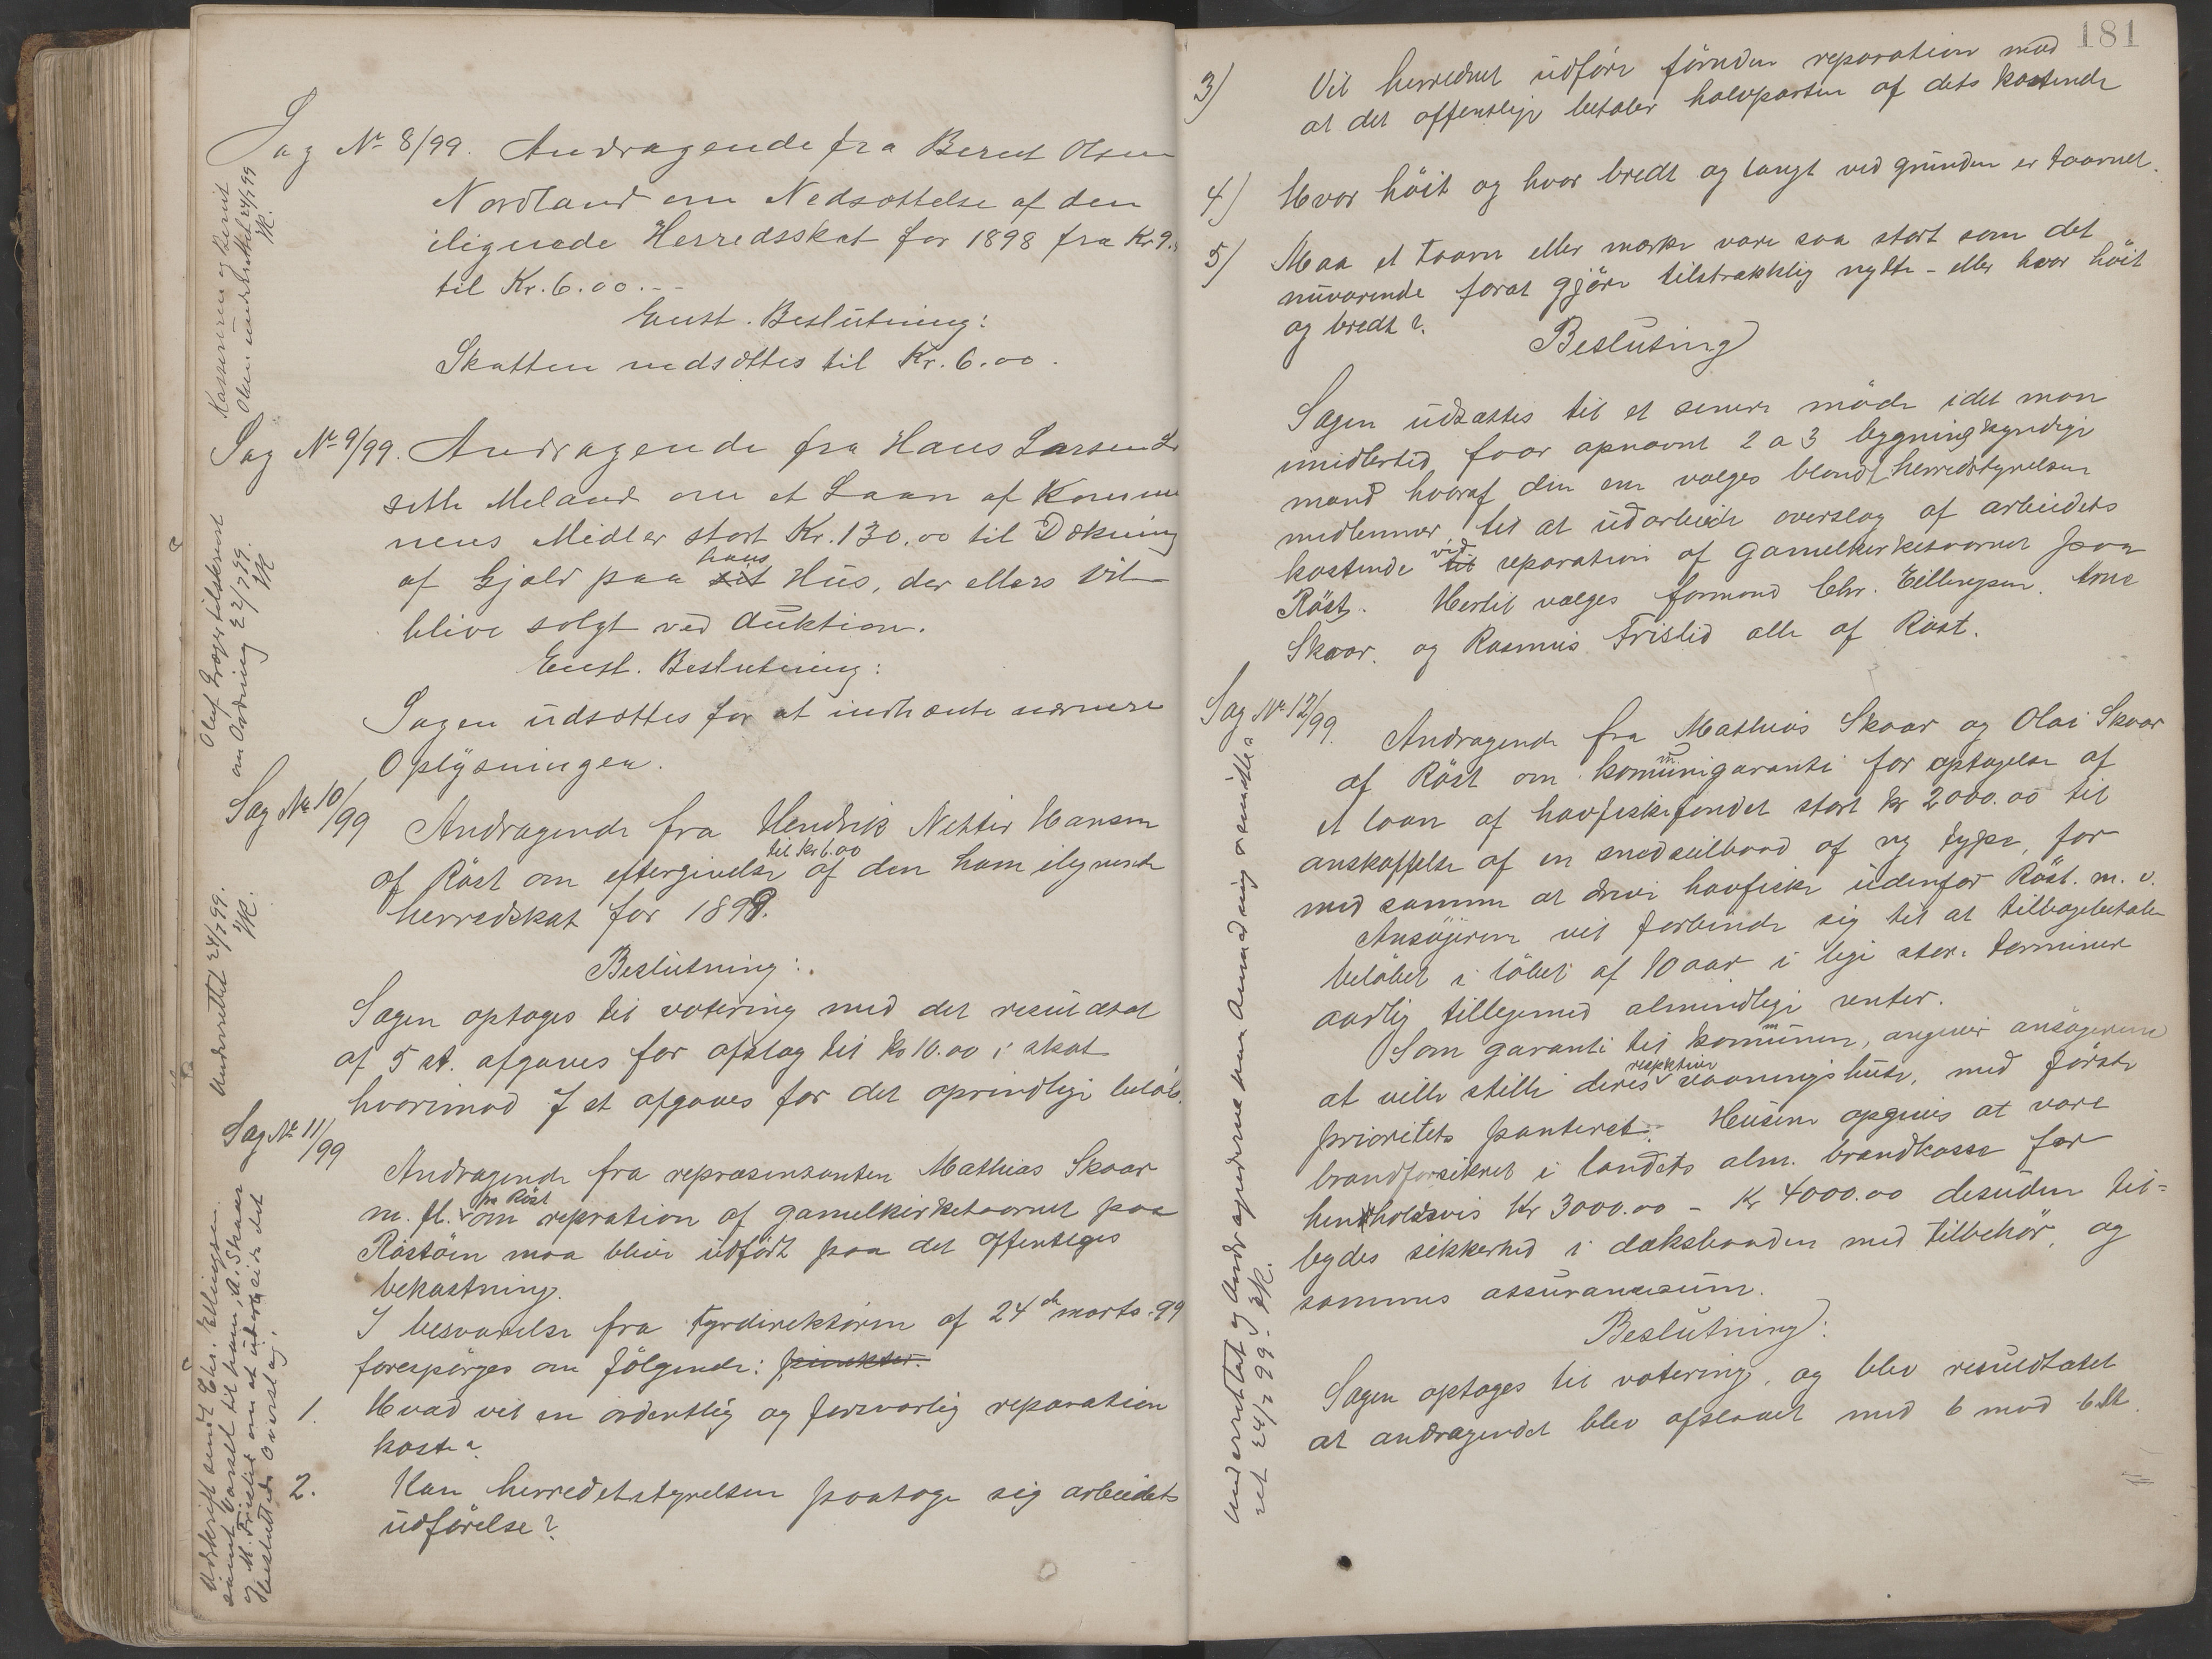 Sag No 8/99. Andragende fra Berent Olsen
Nordland om Nedsættelse af den
ilignede Herredsskat for 1898 fra Kr 9.
til Kr. 6.00.--
Enst. Beslutning:
Skatten nedsættes til Kr. 6.00.
Kasseren og Berent
Olsen underrettet 24/7 99
Sag No 9/99. Andragende fra Hans Larsen
Meland om et Laan af Kommu
nens Midler stort Kr. 130.00 til Dækning
hans
af Gjæld paa sit Hus, der ellers vil
blive solgt ved Auktion.
Enst. Beslutning:
Sagen udsættes for at indhente nærmere
Oplysninger.
Oluf tilskrevet
om Ordning 22/7 99.
Sag No 10/99 Andragende fra Hendrik Hansen
til kr 6.00
af Röst om eftergivelse af den ham ilignede
herredskat for 1898.
Beslutning:
Sagen optoges til votering med det resultat
af 5 st. afgaves for afslag til kr 10.00 i skat
hvorimod 7 st afgaves for det oprindlige belöb.
Underrettet 24/7 99.
Sag No 11/99
Andragende fra repræsentanten Mathias Skaar
paa Röst
m. fl. om repration af gamelkirketaarnet paa
Röstöen maa blive udfört paa det offentliges
bekostning.
I besvarelse fra Fyrdirektören af 24de marts 99
forespörges om fölgende: punkter.
1. Hvad vil en ordentlig og forsvarlig reparation
koste?
2. Kan herredstyrelsen paatage sig arbeidets
udförelse?
Udskrift sendt Chr. Ellingsen
samt Varsel til ham, A. Skaar
og R. Fristid om at udarbeide det
besluttede Overslag.
181
3) Vil herredet udföre förnden reparation mod
at det offentlige betaler halvparten af dets kostende
4) Hvor höit og hvor bredt og langt ved grunden er taarnet.
5) Maa et taarn eller mærke være saa stort som det
nuværende forat gjöre tilstrækklig nytte - eller hvor höit
og bredt?
Beslutning
Sagen udsættes til et senere möde idet man
imidlertid faar opnævnt 2 a 3 bygningskyndige
mænd hvoraf den ene vælges blandt herredstyrelsens
medlemmer, til at udarbeide overslag af arbeidets
ved
kostende til reparation af gamelkirketaarnet paa
Röst. Hertil vælges formand Chr. Ellingsen. Arne
Skaar. og Rasmus Fristid alle af Röst.
Sag No 12/99. Andragende fra Mathias Skaar og Olai Skaar
af Röst om komunigaranti for optagelse af
et laan af havfiskefondet stort kr 2000.00 til
anskaffelse af en snedseilbaad af ny type, for
med samme at drive havfiske udenfor Röst. m. v.
Ansögerne vil forbinde sig til at tilbagebetale
belöbet i löbet af 10 aar i lige store terminer
aarlig tilligemed almindlige renter.
Som garanti til komunen, angiver ansögerne
respektive
at ville stille deres vaaningshuse, med förste
prioritets panteret. Husene opgives at være
brandforsikret i landets alm. brandkasse for
henholdsvis Kr 3000.00 - Kr 4000.00 desuden til-
bydes sikkerhed i dæksbaaden med tilbehör, og
sammes assurancesum.
Beslutning:
Sagen optoges til votering, og blev resultatet
at andragendet blev afslaaet med 6 mod 6 st.
Underrettet og Andragenderne
24/7 99